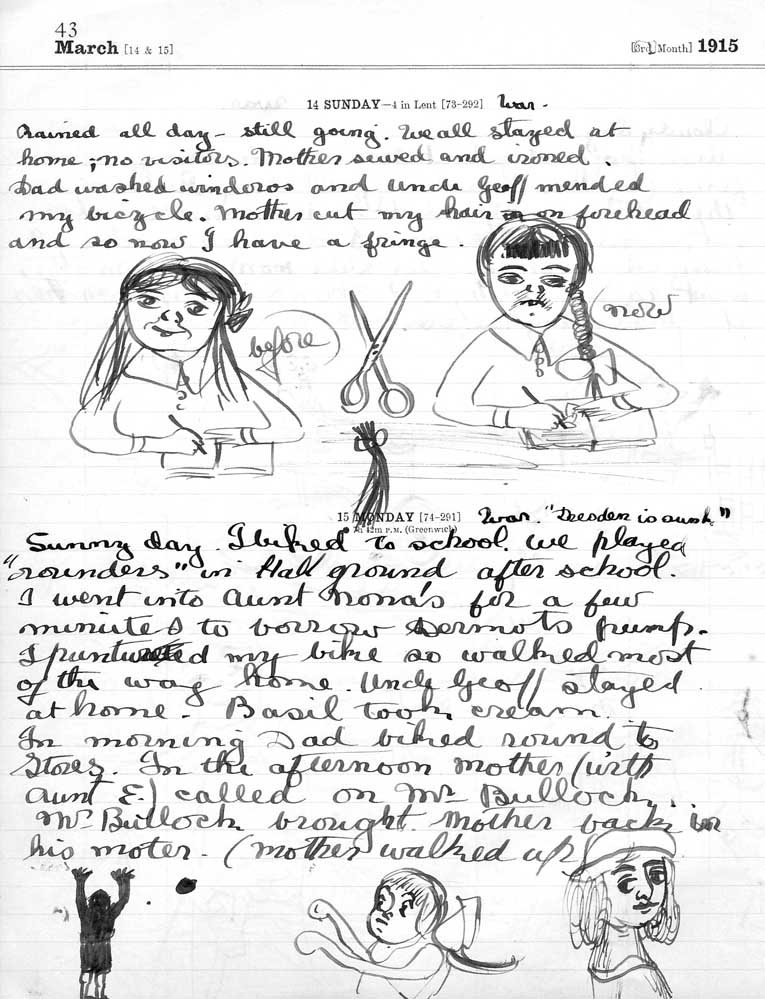 43
March [14 & 15]
[3rd Month] 1915
14 SUNDAY—4 in Lent [73-292] War.
Rained all day - still going. We all stayed at
home; no visitors. Mother sewed and ironed.
Dad washed winderos and Uncle Geoff mended
my bicycle. Mother cut my hair on forehead
and so now I have a fringe.
before
now
15 MONDAY [74-291] War. "Deesden is sunk"
42m P.M. (Greenwich)
Sunny day. I biked to school. We played
"rounders" in Hall ground after school.
I went into Aunt Nona's for a few
minutes to borrow Dermots pump.
I puntured my bike so walked most
of the way home. Uncle Geoff stayed
at home. Basil took cream.
In morning Dad biked round to
Stores. In the afternoon Mother (with
Aunt E.) called on Mrs Bullock.
Mr Bullock brought Mother back in
his moter. (Mother walked up